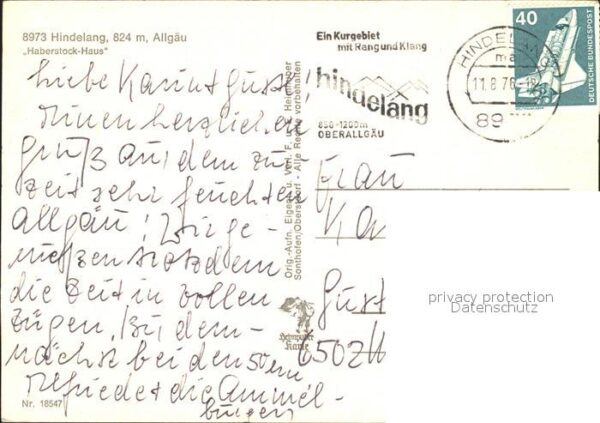 8973 Hindelang, 824 m, Allgäu
„Haberstock-Haus"
Liebe Karin + Gust
Einen herzlichen
Gruß aus dem zur
Zeit sehr feuchten
Allgäu! Wir ge-
niessen trotzdem
die Zeit in vollen
Zügen. Bis dem-
nächst bei den 50ern
die Ammel-
Nr. 18547
Orig.-Aufn. Eigent. u. Verl. F.
Sonthofen/Oberstdorf - Alle Rechte vorbehalten
Heimhuber
Karte
Ein Kurgebiet
mit Rang und Klang
hindelang
850-1200m
OBERALLGÄU
HINDELANG
ma
11.8.76-18
89
40
DEUTSCHE BUNDESPOST
Frau
Ka
Gust
privacy protection
Datenschutz